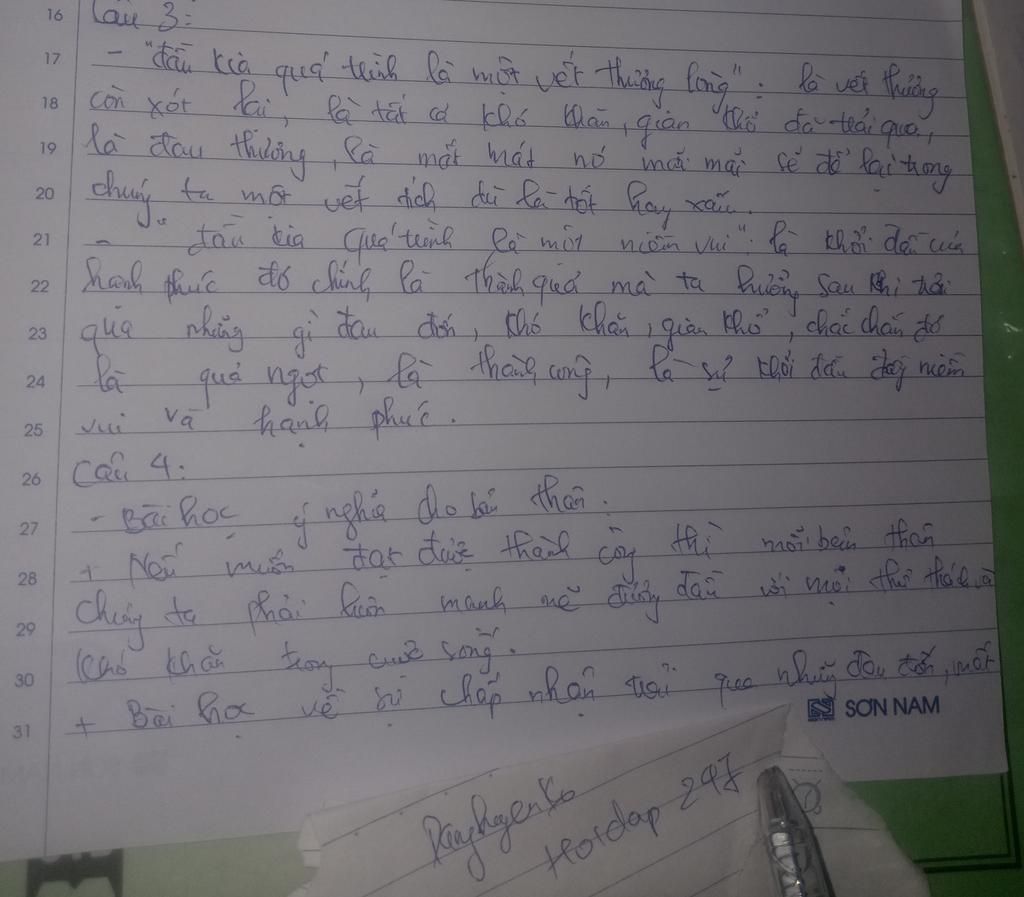 16 Câu 3:
17 - "đầu kia quá trình là một vết thương lòng": là vết thương
18 còn xót lại, là tất cả khó khăn, gian khổ đã trải qua,
19 là đau thương, là mất mát nó mãi mãi sẽ để lại trong
20 chúng ta một vết tích dù là tốt hay xấu.
21 - "đầu kia quá trình là một niềm vui": là khởi đầu của
22 hạnh phúc đó chính là thành quả mà ta hưởng sau khi trải
23 qua những gì đau đớn, khó khăn, gian khổ, chắc chắn đó
24 là quả ngọt, là thành công, là sự khởi đầu đầy niềm
25 vui và hạnh phúc.
26 Câu 4:
27 - Bài học ý nghĩa cho bản thân.
28 + Nếu muốn đạt được thành công thì mỗi bản thân
29 chúng ta phải luôn mạnh mẽ đương đầu với mọi thử thách và
30 khó khăn trong cuộc sống.
31 + Bài học về sự chấp nhận trải qua những đau đớn, mất
SƠN NAM
Hoidap 247